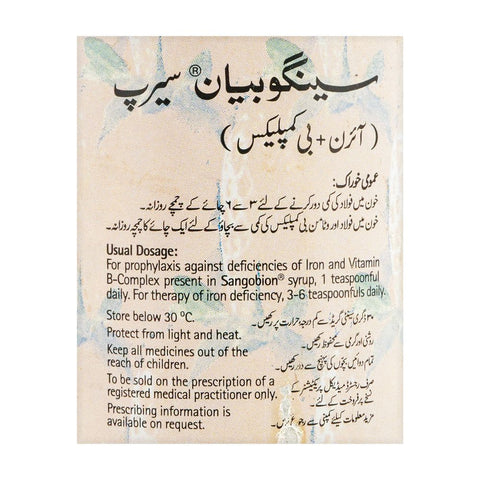 سینگوبیان® سیرپ
(آئرن + بی کمپلیکس)
عمومی خوراک:
خون میں فولاد کی کمی دور کرنے کے لئے ۳ سے ۶ چائے کے چمچے روزانہ۔
خون میں فولاد اور وٹامن بی کمپلیکس کی کمی سے بچاؤ کے لئے ایک چائے کا چمچہ روزانہ۔
Usual Dosage:
For prophylaxis against deficiencies of Iron and Vitamin
B-Complex present in Sangobion® syrup, 1 teaspoonful
daily. For therapy of iron deficiency, 3-6 teaspoonfuls daily.
Store below 30 ºC.
۳۰ ڈگری سینٹی گریڈ سے کم درجہ حرارت پر رکھیں۔
Protect from light and heat.
روشنی اور گرمی سے محفوظ رکھیں۔
Keep all medicines out of the
reach of children.
تمام دوائیں بچوں کی پہنچ سے دور رکھیں۔
To be sold on the prescription of a
registered medical practitioner only.
صرف رجسٹرڈ میڈیکل پریکٹیشنر کے
نسخے پر فروخت کے لئے۔
Prescribing information is
available on request.
مزید معلومات کیلئے کمپنی سے رجوع کریں۔